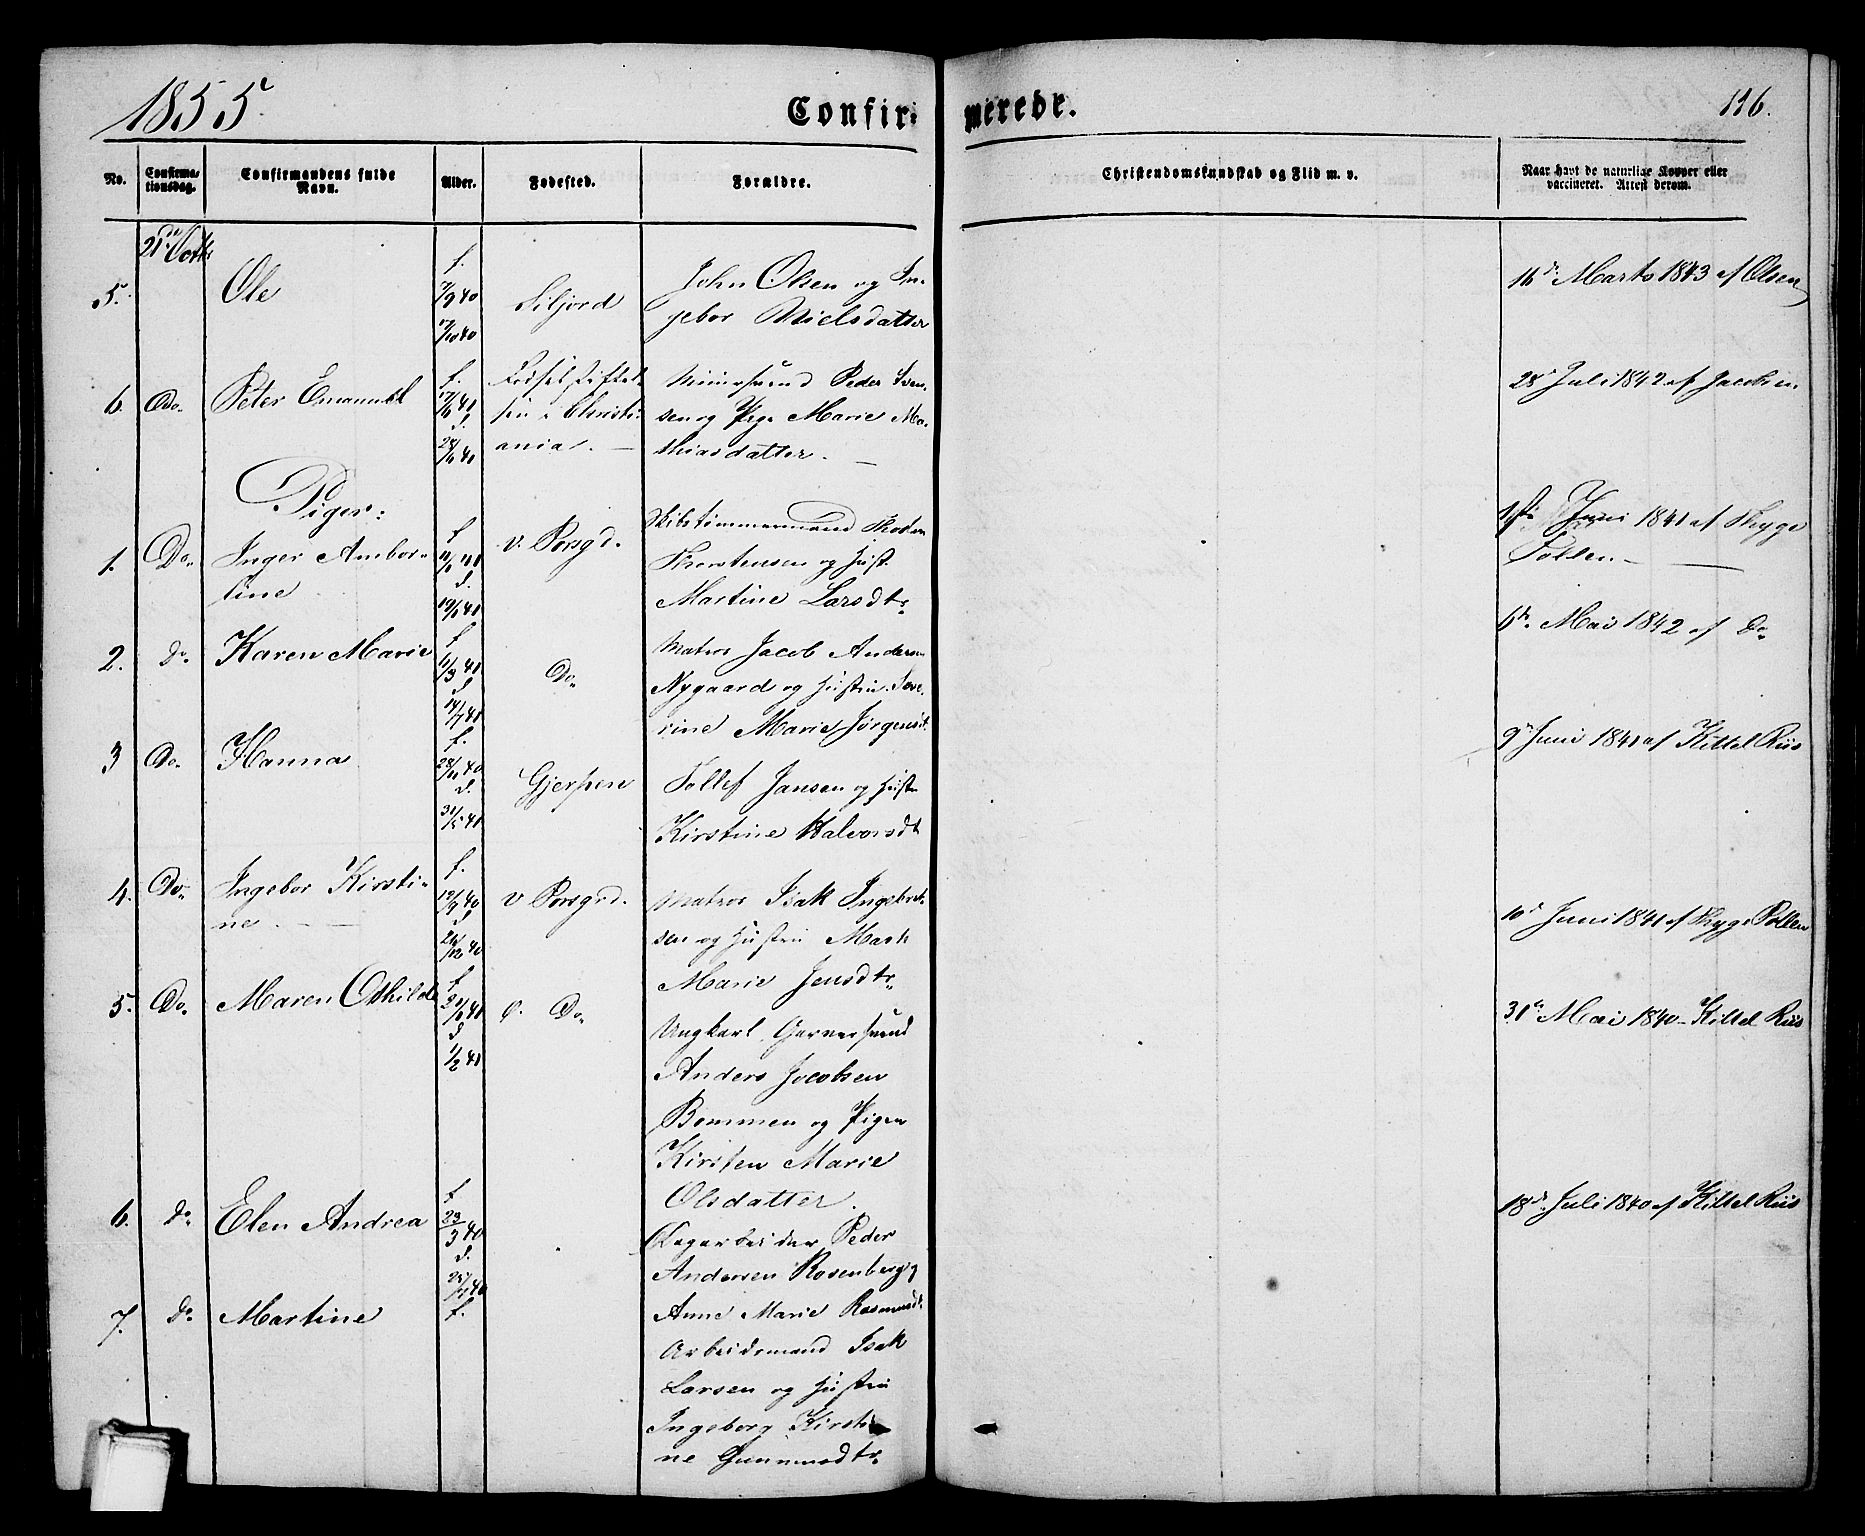 1855.
Confirmerede.
116.
No.
Confirmationsdag.
Confirmandens fulde Navn.
Alder.
Fødested.
Forældre.
Christendomskundskab og Flid m. v.
Naar havt de naturlige Kopper eller vaccineret. Attest derom.
21de Octb.
5. Ole f. 7/9 40 Siljord John Olsen og In-
gebor Nielsdatter
16de Marts 1843 af Olsen
6. Do. Peter Emanuel f. Fødselsstiftel- Peder Sven-
sen i Christi- sen og Pige Marie Ma-
ania. thiasdatter.
28de Juli 1842 af Jacobsen
Piger:
1. Do. Inger Ambor- f. v. Porsgd. Skibstømmermand
tine Thorstensen og Hust.
Martine Larsdtr.
Juni 1841 af Thyge
2. do. Karen Marie f. Do. Matros Jacob Anders.
Nygaard og Hustru Seve-
rine Marie Jørgensdt.
6te Mai 1842 af Do.
3 Do. Hanna f. Gjerpen Tollef Jansen og Hustr.
Kirstine Halvorsdt
9de Juni 1841 af Kittel Riis
4. Do. Ingebor Kirsti- f. 19/9 40 v Porsgrd. Matros Isak Ingebret-
ne. sen og Hustru Maren
Marie Jensdtr.
10de Juni 1841 af Thyge
5. Do. Maren Othilde f. 1/2 41 ø. Do. Ungkarl, Garversvend
Anders Jacobsen
Bommen og Pigen
Kirsten Marie
Olsdatter.
31te Mai 1840 Kittel Riis
6. do. Elen Andrea f. 23/3 40 Dagarbeider Peder
Andersen Rosenberg og
Anne Marie Rasmusdt.
18de Juli 1840 af Kittel Riis
7. do. Martine f. Arbeidsmand Isak
Larsen og Hustru
Ingeborg Kirsti-
ne Gunmundtr.